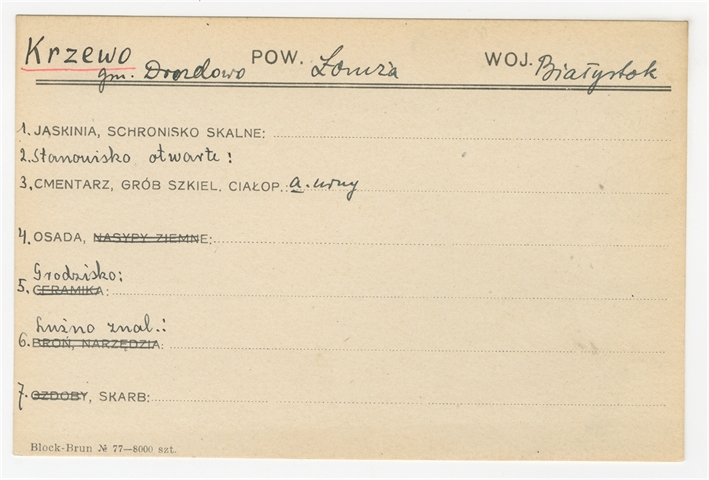 Krzewo POW. Łomża WOJ. Białystok
gm. Drozdowo
1. JASKINIA, SCHRONISKO SKALNE:
2. Stanowisko otwarte:
3. CMENTARZ, GRÓB SZKIEL. CIAŁOP. a. urny
4. OSADA, NASYPY ZIEMNE:
Grodzisko:
5. CERAMIKA:
Luźno znal.:
6. BROŃ, NARZĘDZIA:
7. OZDOBY, SKARB:
Block-Brun № 77—8000 szt.